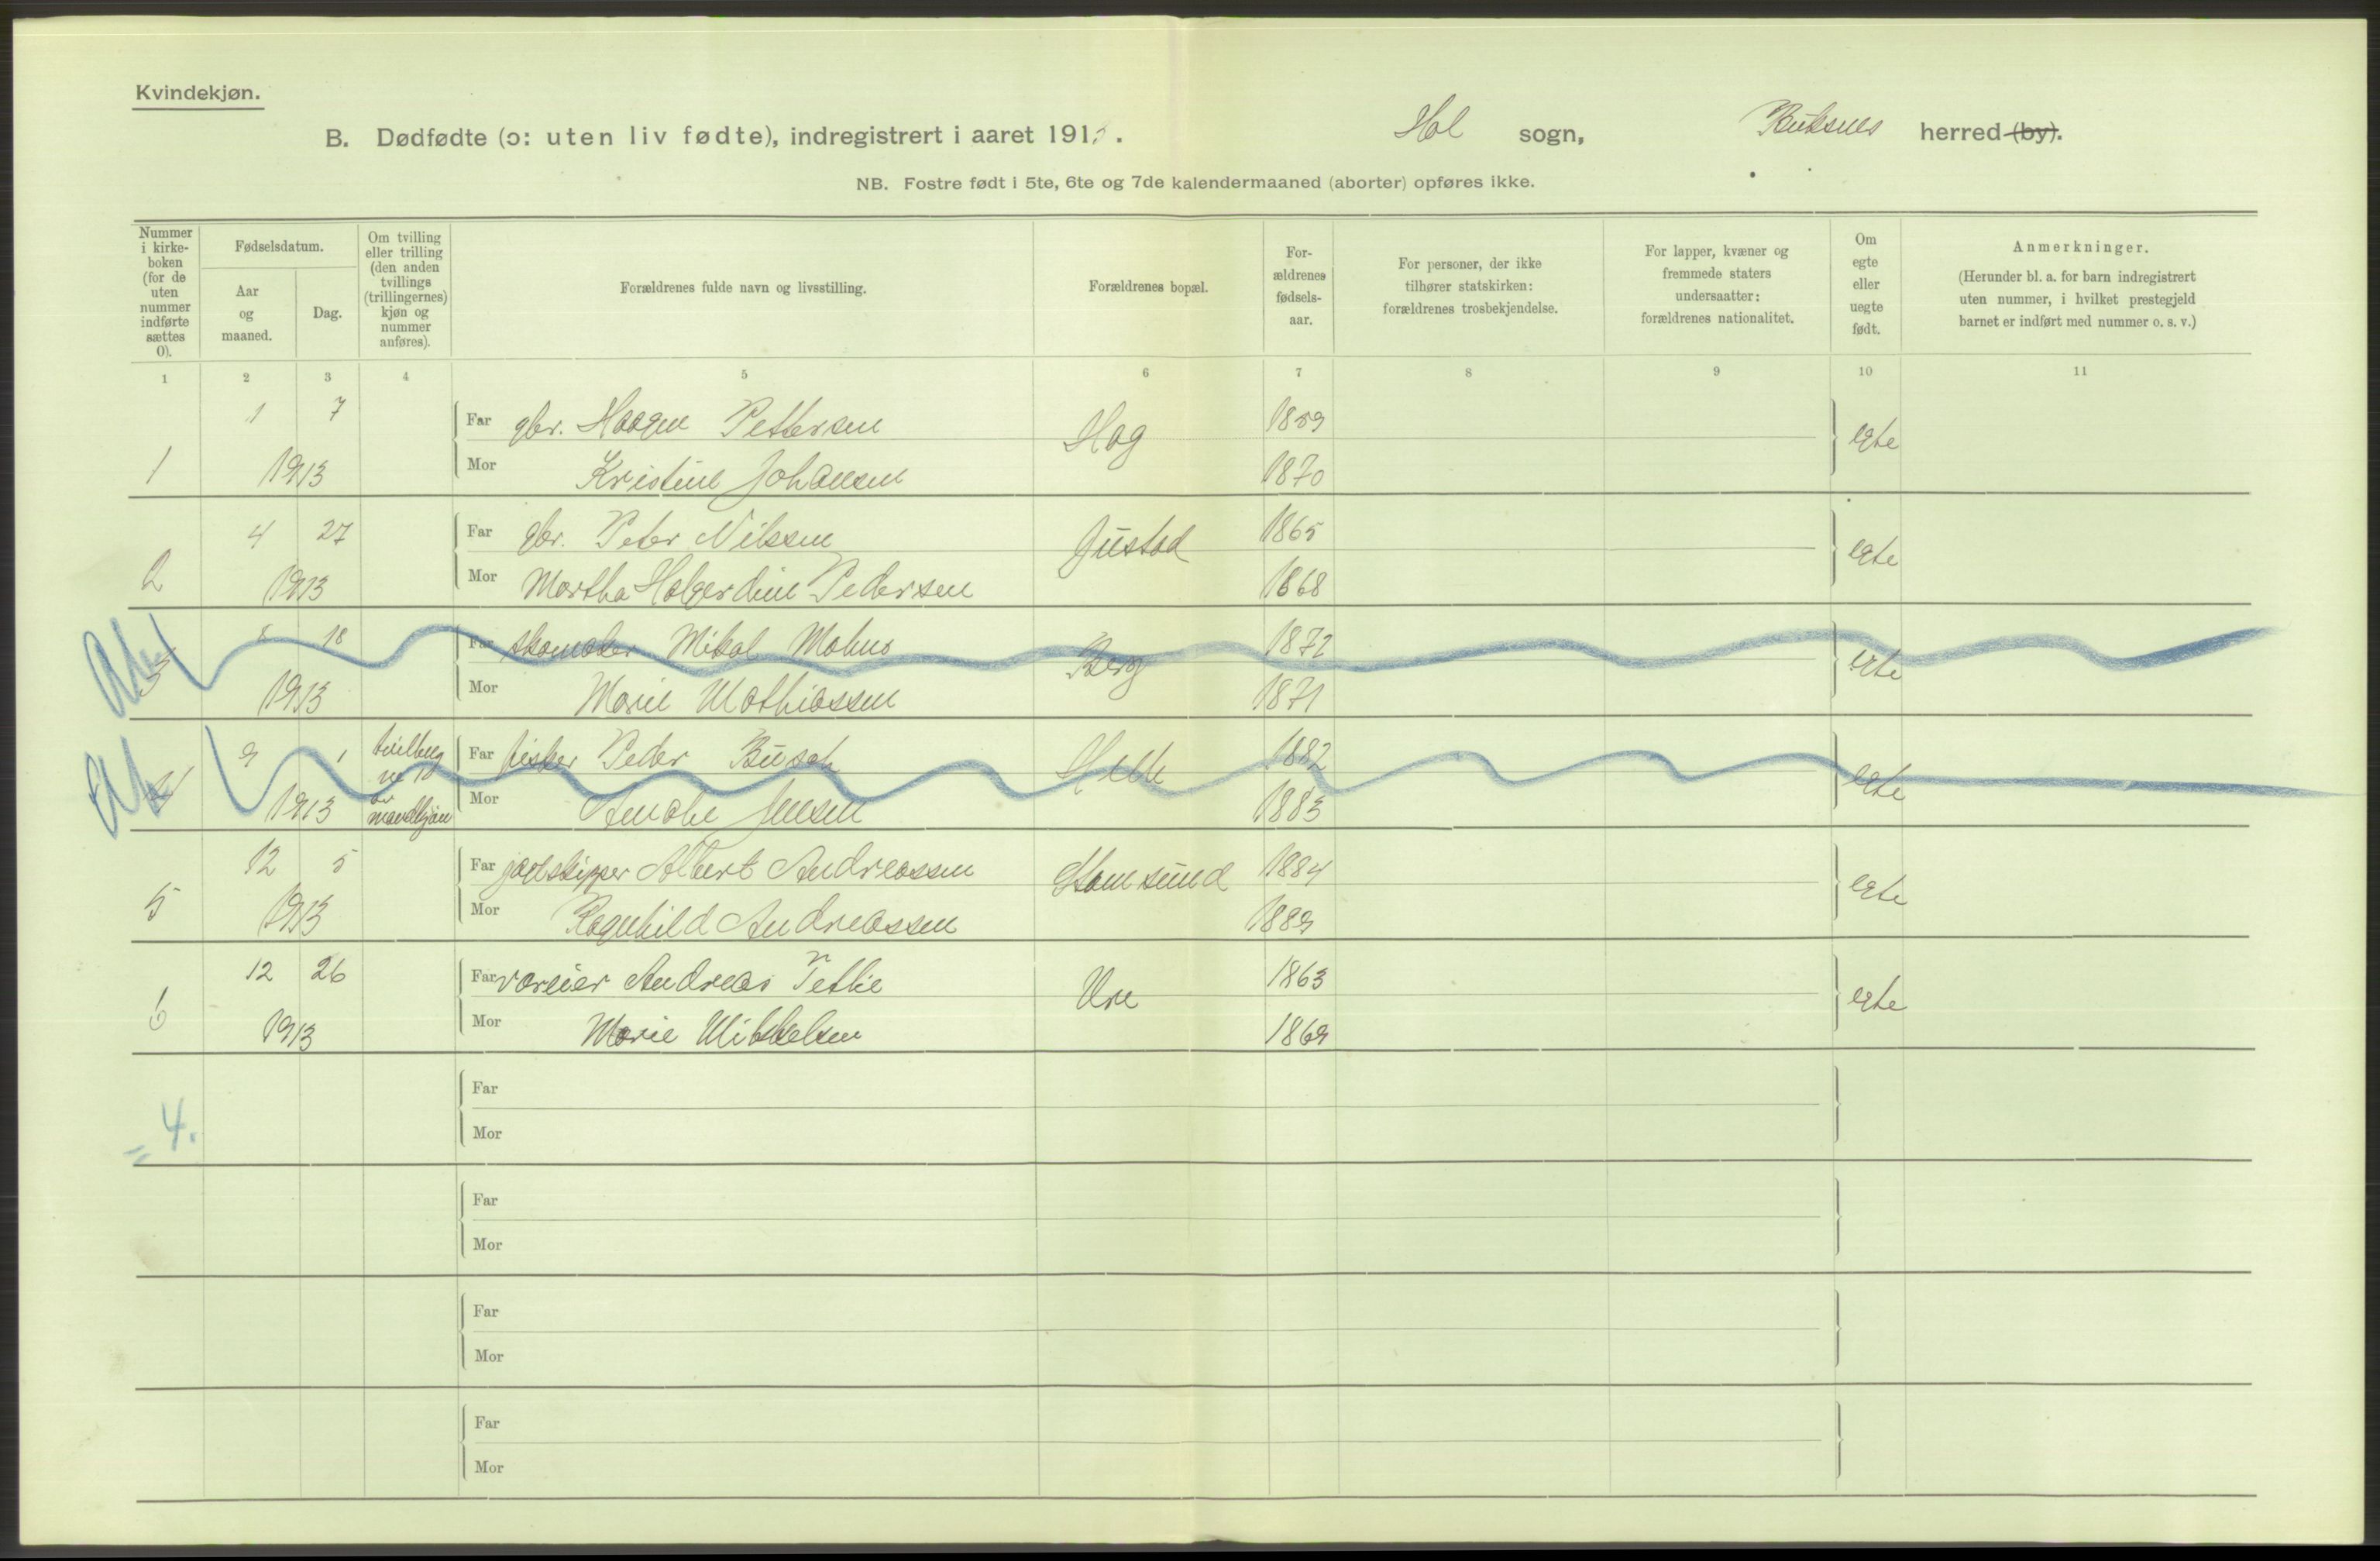 Kvindekjøn.
B. Dødfødte (ɔ: uten liv fødte), indregistrert i aaret 1913. Hol sogn, Buksnes herred (by).
NB. Fostre født i 5te, 6te og 7de kalendermaaned (aborter) opføres ikke.
Nummer i kirke- boken (for de uten nummer indførte sættes 0).
Fødselsdatum.
Aar og maaned.
Dag.
Om tvilling eller trilling (den anden tvillings (trillingernes) kjøn og nummer anføres).
Forældrenes fulde navn og livsstilling.
Forældrenes bopæl.
For- ældrenes fødsels- aar.
For personer, der ikke tilhører statskirken: forældrenes trosbekjendelse.
For lapper, kvæner og fremmede staters undersaatter: forældrenes nationalitet.
Om egte eller uegte født.
Anmerkninger.
(Herunder bl. a. for barn indregistrert uten nummer, i hvilket prestegjeld barnet er indført med nummer o. s. v.)
1 2 3 4 5 6 7 8 9 10 11
1 7 Far gbr. Haagen Pettersen Hag 1859 egte
1 1913 Mor Kristine Johansen 1870
4 27 Far gbr. Peter Nilssen Justad 1865 egte
2 1913 Mor Martha Holgerdine Pedersen 1868
8 18 Far skomaker Mikal Berg 1872 egte
3 1913 Mor Marie Mathiassen 1871
9 1 tvilling Far fisker Peder Busch Helle 1882 egte
4 1913 er mandkjøn Mor Amalie Jensen 1883
12 5 Far Albert Andreassen Stamsund 1884 egte
5 1913 Mor Ragnhild Andreassen 1889
12 26 Far væreier Andreas Ure 1863 egte
6 1913 Mor Marie Mikkelsen 1869
= 4.
Far
Mor
Far
Mor
Far
Mor
Far
Mor